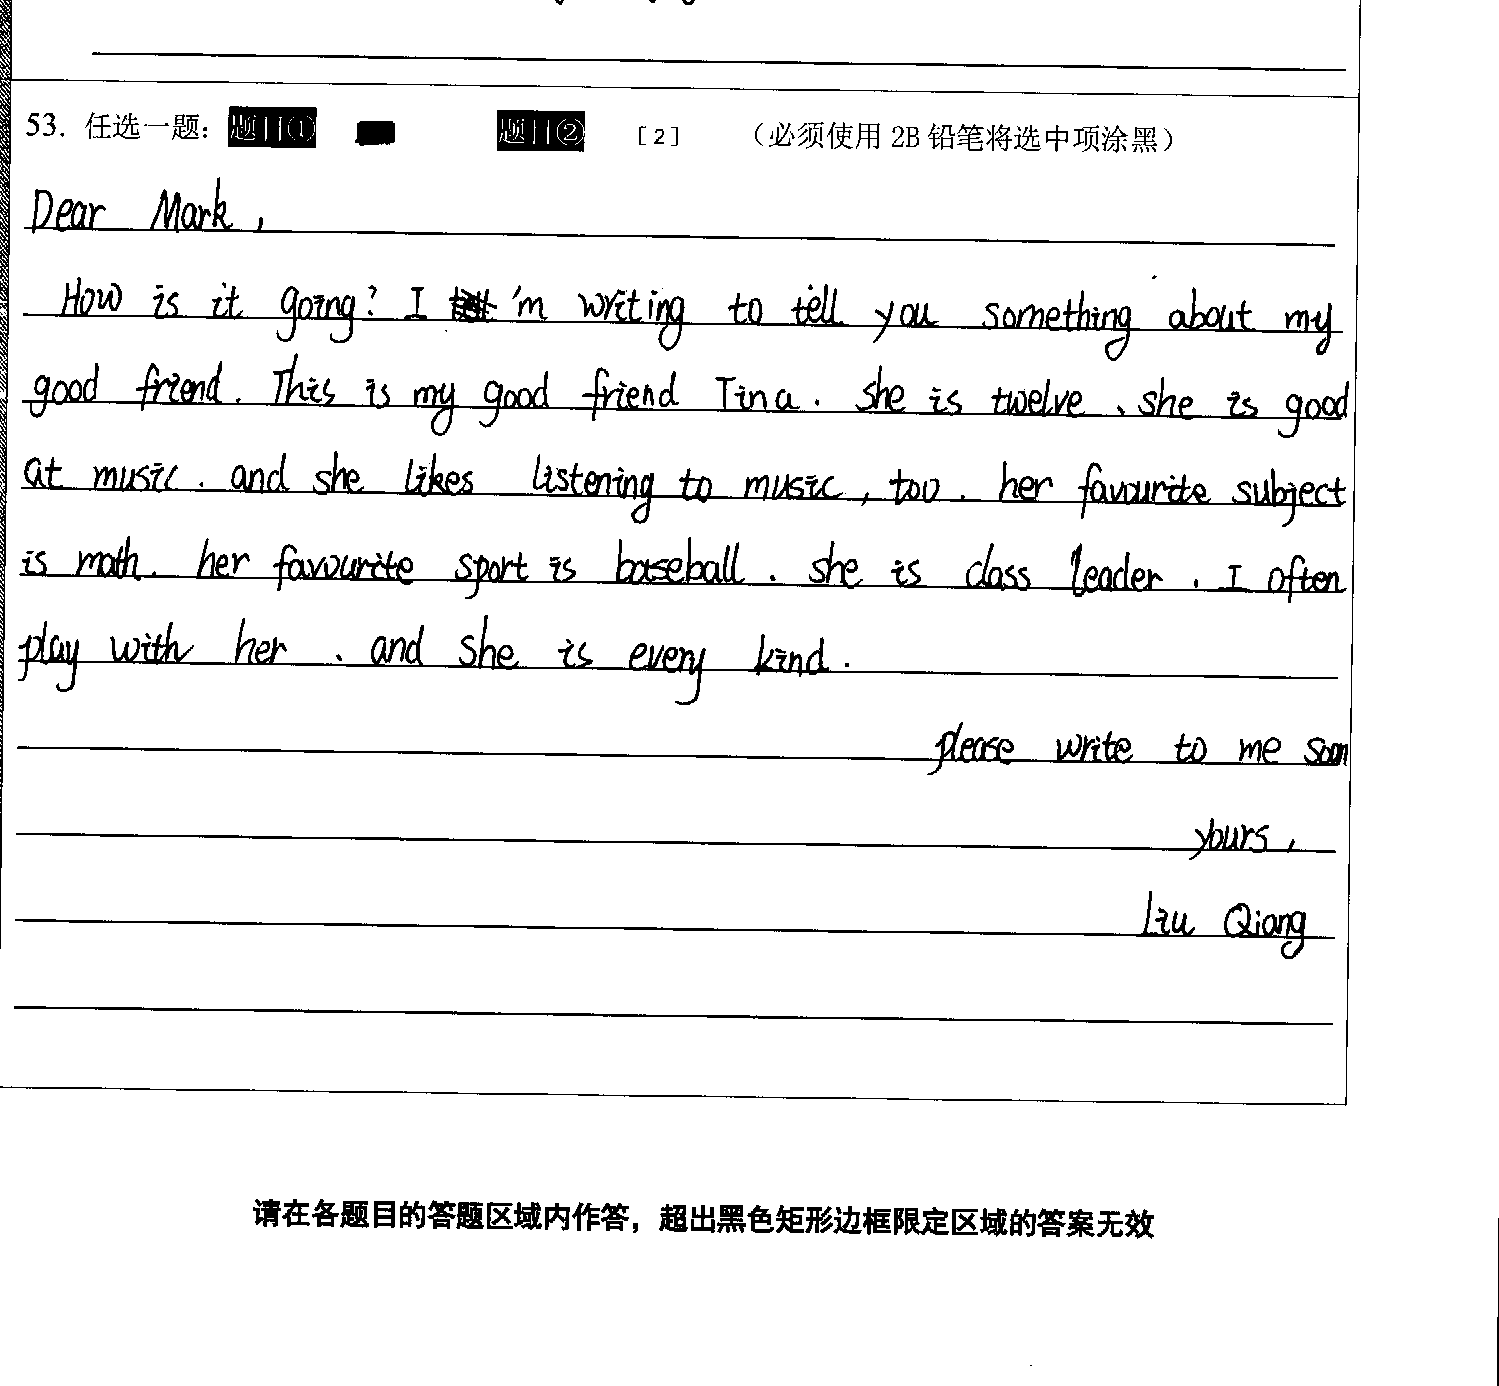 53. 任选一题: 题目① 题目② [2] (必须使用 2B 铅笔将选中项涂黑)
Dear Mark,
How is it going? I 'm writing to tell you something about my
good friend. This is my good friend Tina. she is twelve. she is good
at music. and she likes listening to music, too. her favourite subject
is math. her favourite sport is baseball. she is class leader. I often
play with her. and she is every kind.
please write to me soon
yours,
Liu Qiang
请在各题目的答题区域内作答，超出黑色矩形边框限定区域的答案无效